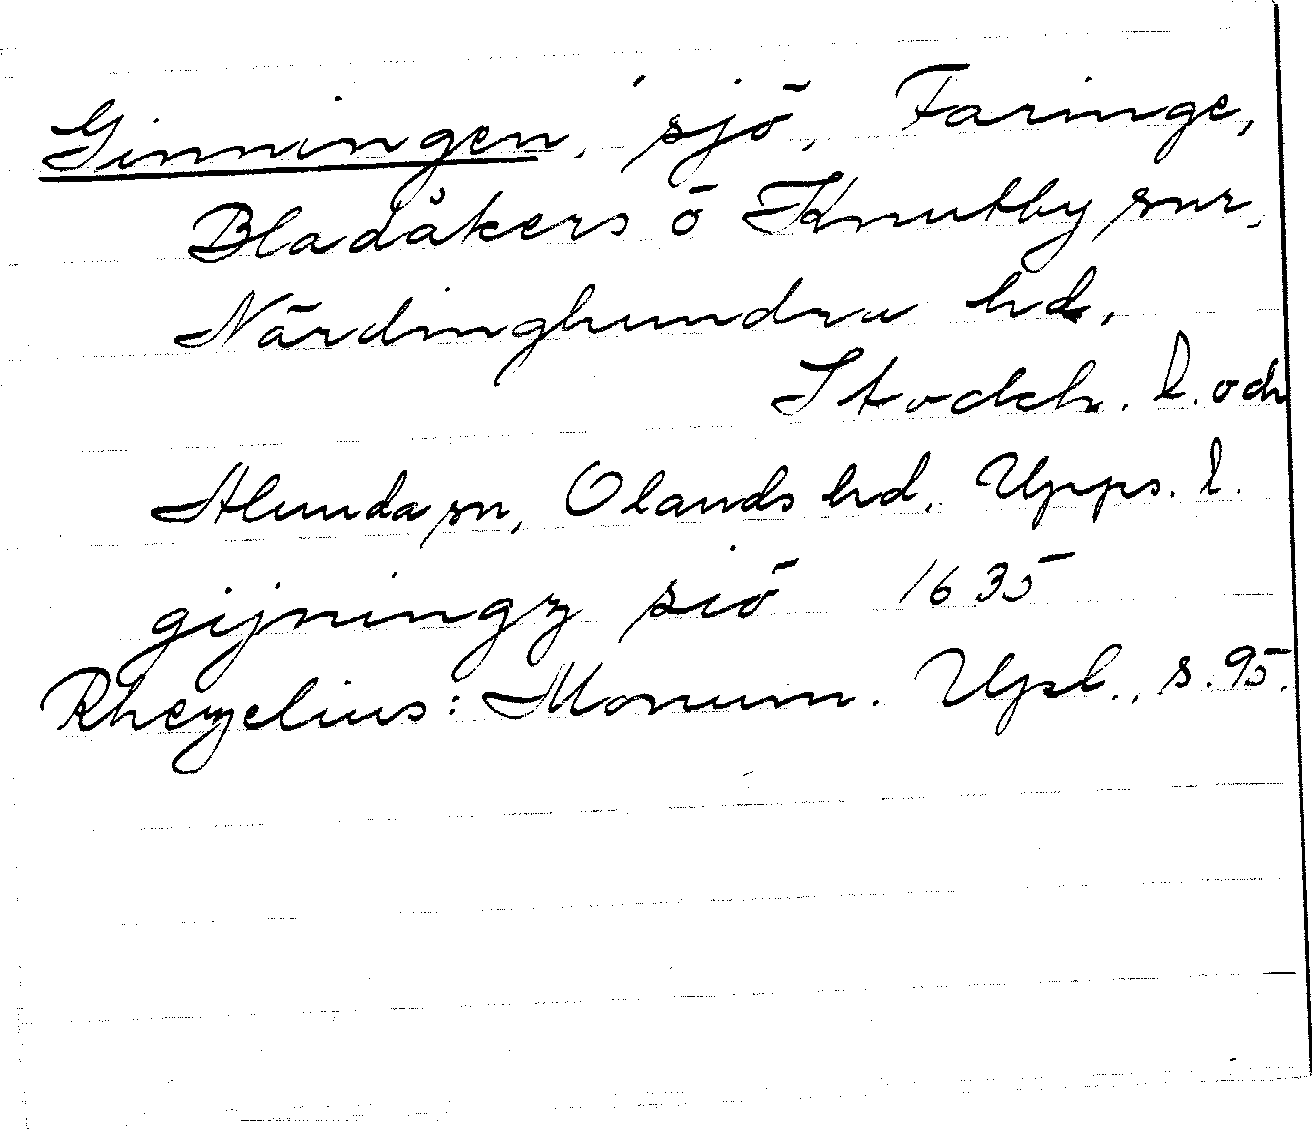 Ginningen, sjö, Faringe,
Bladåkers o Knutby snr,
Närdinghundra hd,
Stockh. l. och
Alunda sn, Olands hd, Upps. l.
gijningz siö 1635
Rhezelius: Monum. Upl., s. 95.